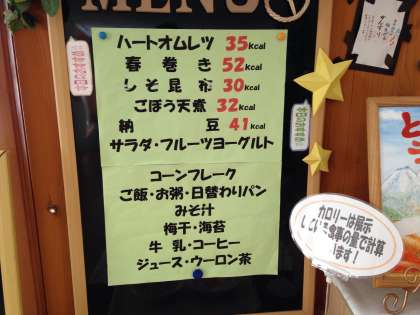 MENU
ハートオムレツ 35kcal
春巻き 52kcal
しそ昆布 30kcal
ごぼう天煮 32kcal
納豆 41kcal
サラダ・フルーツヨーグルト
コーンフレーク
ご飯・お粥・日替わりパン
みそ汁
梅干・海苔
牛乳・コーヒー
ジュース・ウーロン茶
カロリーは展示
している食事の量で計算
します!